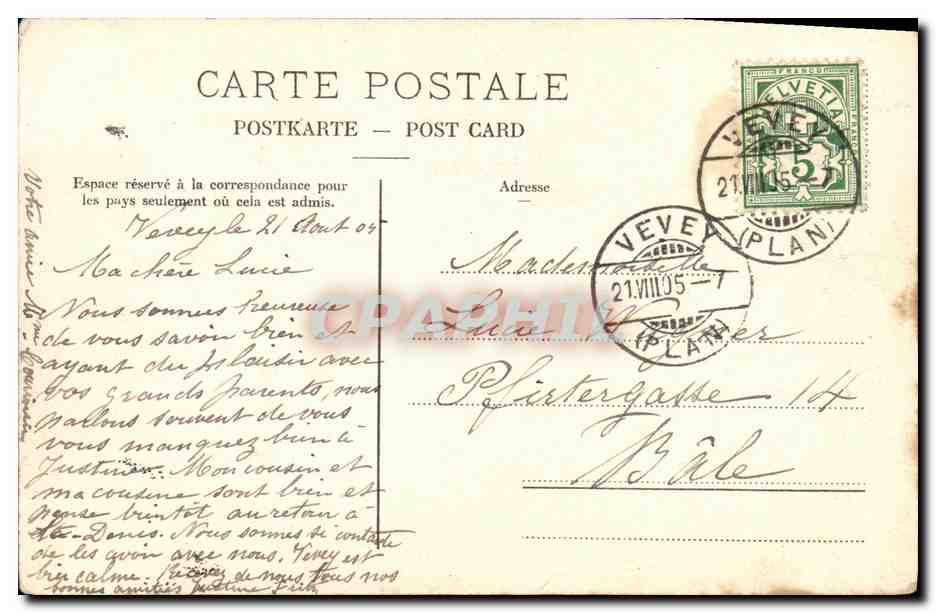 CARTE POSTALE
POSTKARTE — POST CARD
Espace réservé à la correspondance pour
les pays seulement où cela est admis.
Adresse
FRANCO
HELVETIA
5
VEVEY
21.VIII.05-7
(PLAN)
VEVEY
21.VIII.05-7
(PLAN)
Vevey le 21 Aout 05
Ma chère Lucie
Nous sommes heureuse
de vous savoir bien et
ayant du plaisir avec
vos grands parents, nous
parlons souvent de vous
vous manquez bien à
Justine. Mon cousin et
ma cousine sont bien et
pense bientôt au retour à
St-Denis. Nous sommes si contente
de les avoir avec nous. Vevey est
bien calme. Recevez de nous tous nos
bonnes amitiés Justine
Votre amie Mme
Mademoiselle
Lucie
Pfirtergasse 14
Bâle
CPAPHIL